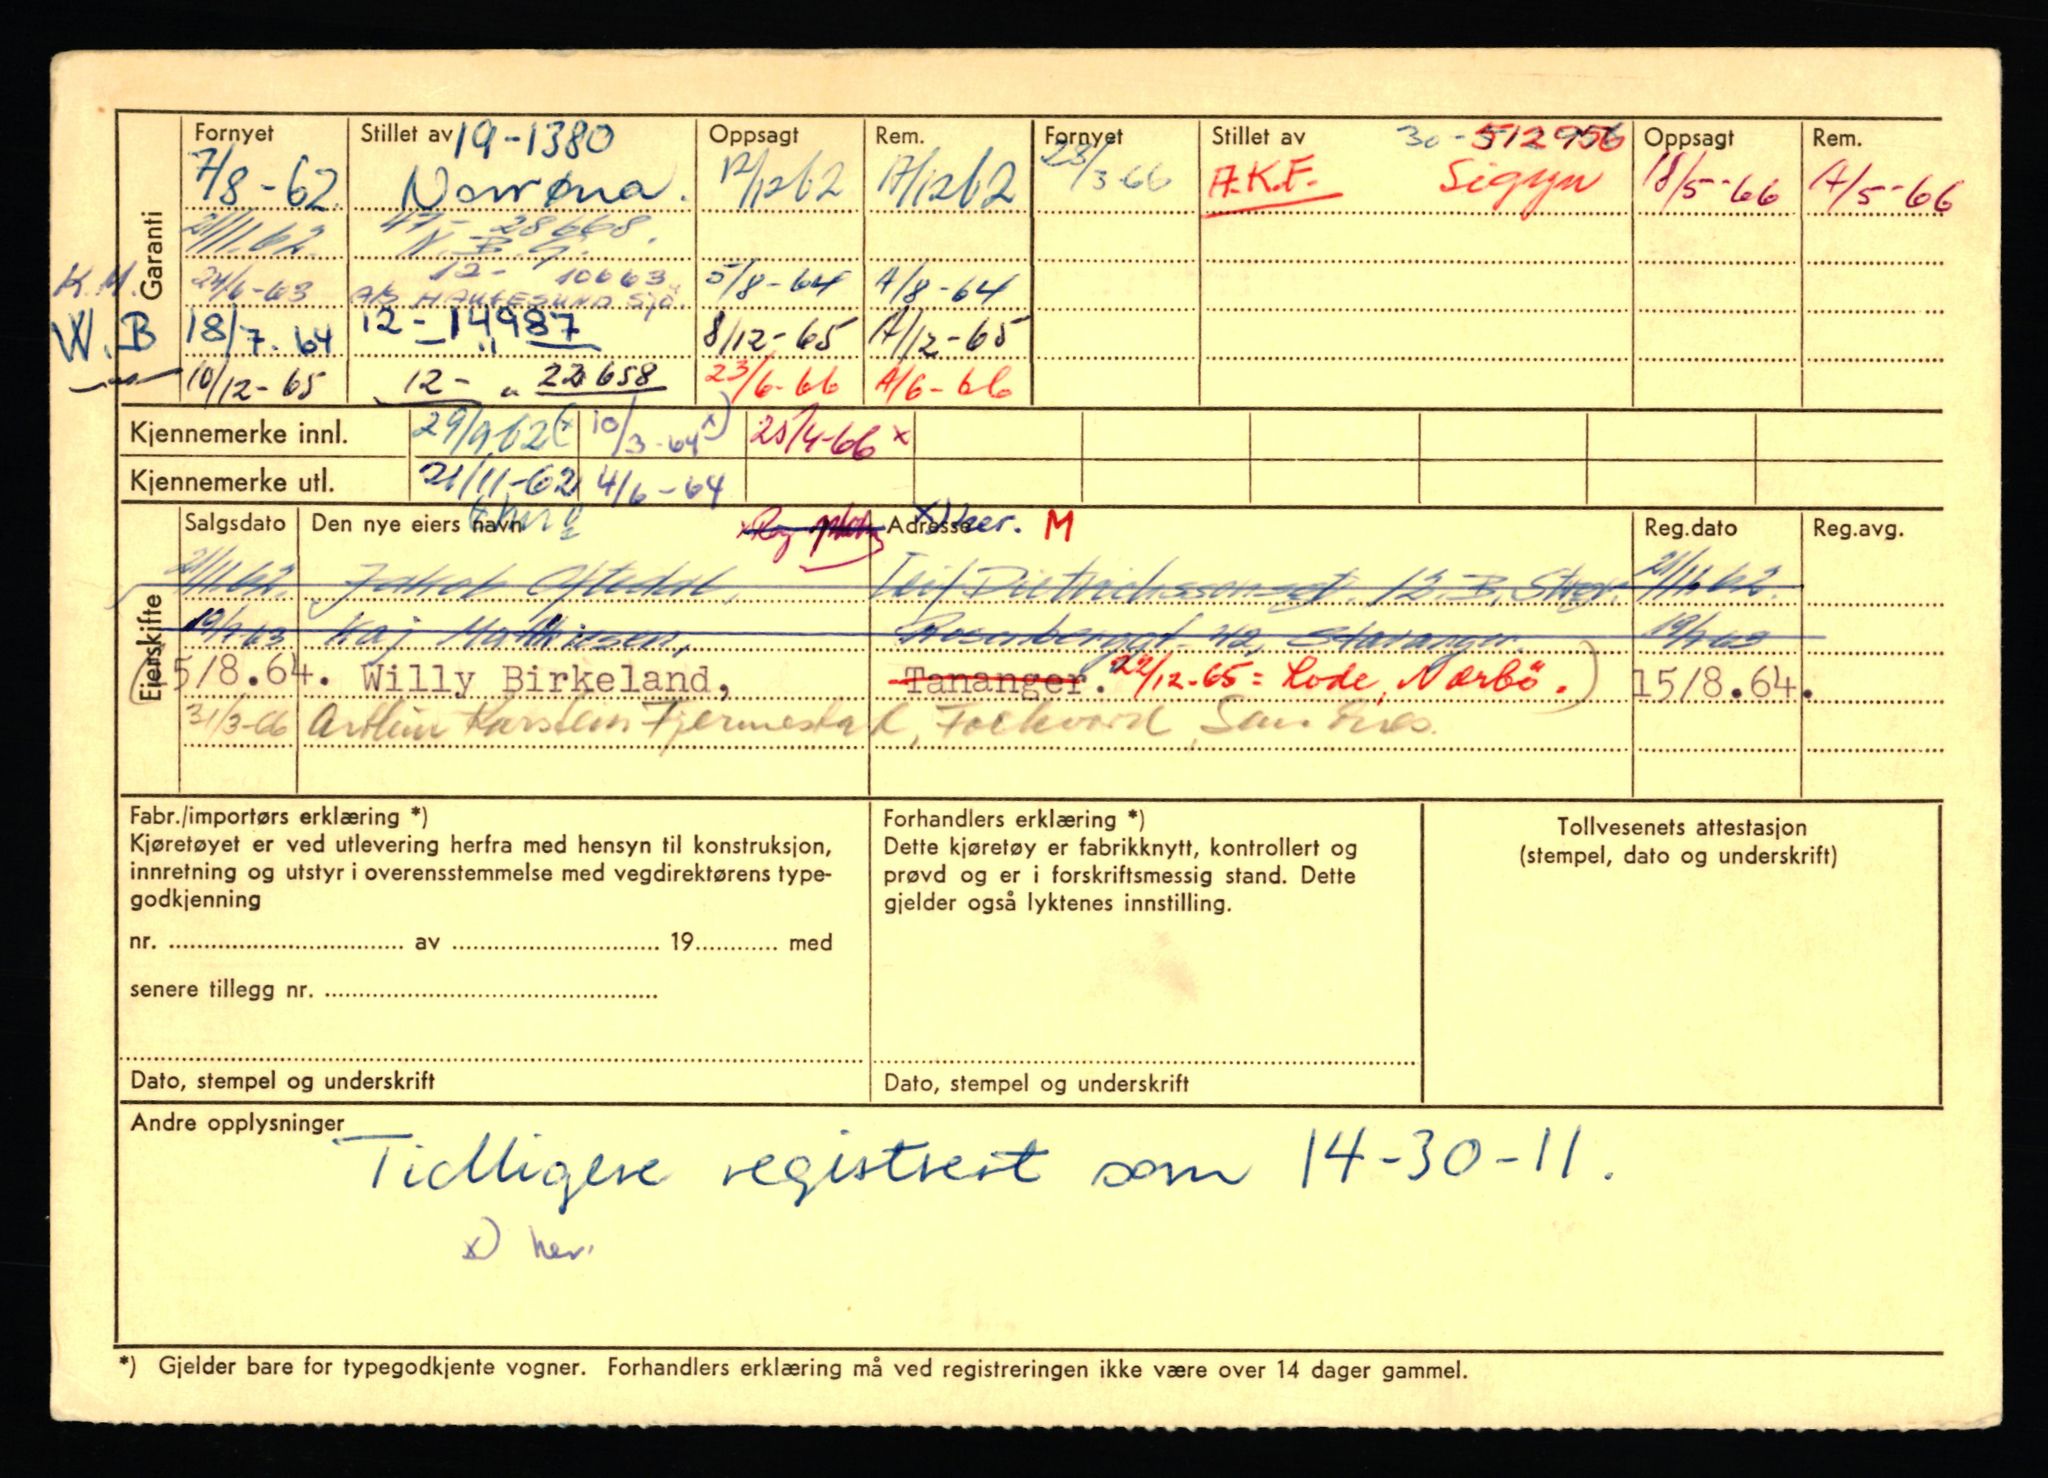 Garanti
Fornyet Stillet av 19-1380 Oppsagt Rem. Fornyet Stillet av 30-512956 Oppsagt Rem.
7/8-62. Norrøna. 12/12 62 A/12 62 23/3 66 A.K.F. Sigyn 18/5-66 A/5-66
21/11.62. 47-28668.
N.B.G.
12- 10663
K.M. 24/6-63 A/S HAUGESUND SJØ. 5/8-64 A/8-64
W.B 18/7.64 12-14987 8/12-65 A/12-65
10/12-65 12- " 22658 23/6-66 A/6-66
Kjennemerke innl. 29/9.62(x 10/3-64x) 25/4-66 x
Kjennemerke utl. 21/11-62 4/6-64
Eierskifte
Salgsdato Den nye eiers navn Adresse x) her. M Reg.dato Reg.avg.
21/11.62. Jakob Oftedal, Leif Dietrichssonsgt. 12.B, Stvgr. 21/11.62.
19/7 63 Kaj Mathiesen, Rosenberggt. 42, Stavanger. 19/7 63
(15/8.64. Willy Birkeland, Tananger. 22/12-65 = Lode, Nærbö.) 15/8.64.
31/3-66 Arthur Karsten Fjermestad, Fockvord, Sandnes.
Fabr./importørs erklæring *)
Kjøretøyet er ved utlevering herfra med hensyn til konstruksjon,
innretning og utstyr i overensstemmelse med vegdirektørens type-
godkjenning
nr. .......... av .......... 19.......... med
senere tillegg nr. ..........
Dato, stempel og underskrift
Forhandlers erklæring *)
Dette kjøretøy er fabrikknytt, kontrollert og
prøvd og er i forskriftsmessig stand. Dette
gjelder også lyktenes innstilling.
Dato, stempel og underskrift
Tollvesenets attestasjon
(stempel, dato og underskrift)
Andre opplysninger
Tidligere registrert som 14-30-11.
x) her.
*) Gjelder bare for typegodkjente vogner. Forhandlers erklæring må ved registreringen ikke være over 14 dager gammel.